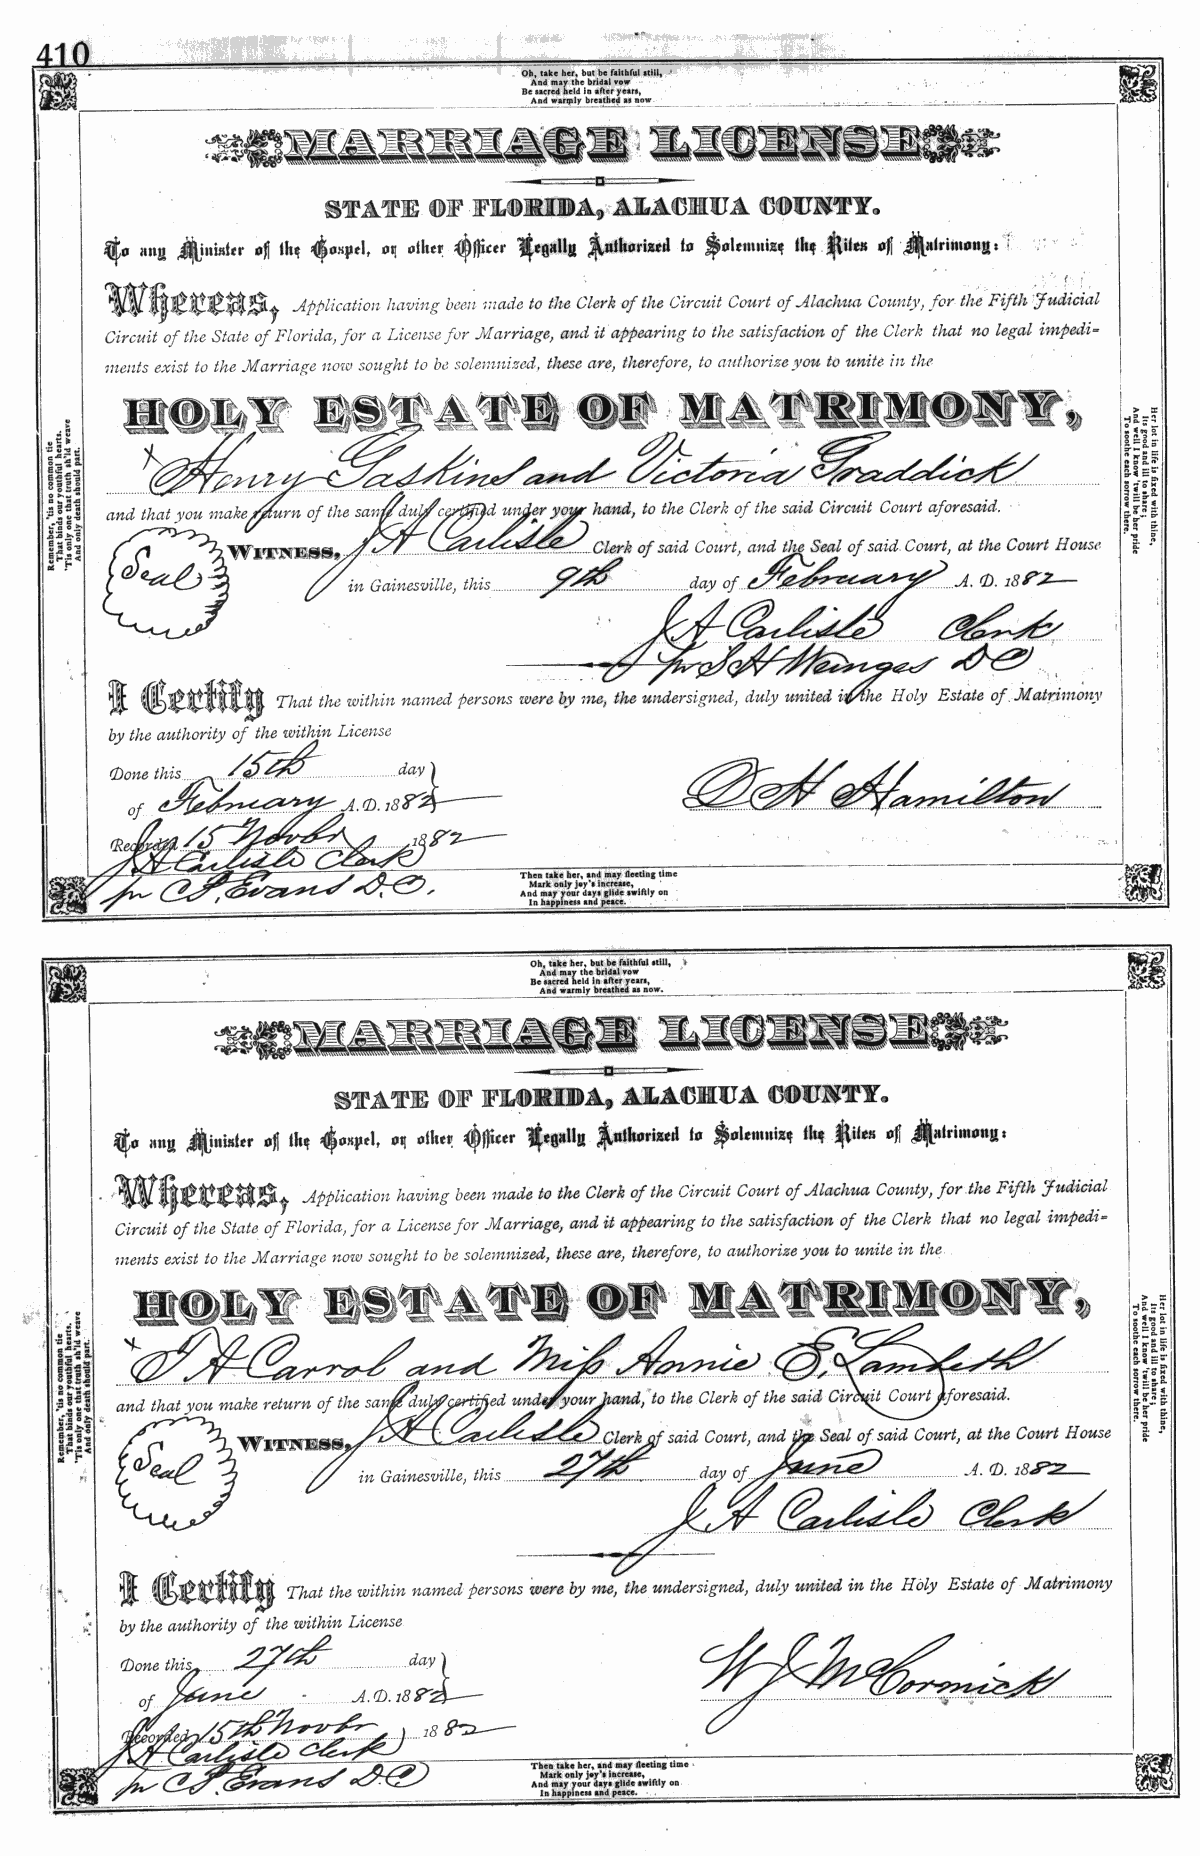 410
Oh, take her, but be faithful still,
And may the bridal vow
Be sacred held in after years,
And warmly breathed as now
MARRIAGE LICENSE
STATE OF FLORIDA, ALACHUA COUNTY.
To any Minister of the Gospel, or other Officer Legally Authorized to Solemnize the Rites of Matrimony:
Whereas, Application having been made to the Clerk of the Circuit Court of Alachua County, for the Fifth Judicial
Circuit of the State of Florida, for a License for Marriage, and it appearing to the satisfaction of the Clerk that no legal impedi=
ments exist to the Marriage now sought to be solemnized, these are, therefore, to authorize you to unite in the
HOLY ESTATE OF MATRIMONY,
x Henry Gaskins and Victoria Graddick
and that you make return of the same duly certified under your hand, to the Clerk of the said Circuit Court aforesaid.
Seal
WITNESS, J A Carlisle Clerk of said Court, and the Seal of said Court, at the Court House
in Gainesville, this 9th day of February A. D. 1882
J A Carlisle Clerk
pr S H Wienges D C
I Certify That the within named persons were by me, the undersigned, duly united in the Holy Estate of Matrimony
by the authority of the within License
Done this 15th day
of February A. D. 1882
D H Hamilton
Recorded 15 Novbr 1882
J A Carlisle Clerk
pr C P. Evans D.C.
Remember, 'tis no common tie
That binds our youthful hearts,
'Tis only one that truth sh'ld weave
And only death should part.
Her lot in life is fixed with thine,
Its good and ill to share;
And well I know 'twill be her pride
To soothe each sorrow there.
Then take her, and may fleeting time
Mark only joy's increase,
And may your days glide swiftly on
In happiness and peace.
Oh, take her, but be faithful still,
And may the bridal vow
Be sacred held in after years,
And warmly breathed as now.
MARRIAGE LICENSE
STATE OF FLORIDA, ALACHUA COUNTY.
To any Minister of the Gospel, or other Officer Legally Authorized to Solemnize the Rites of Matrimony:
Whereas, Application having been made to the Clerk of the Circuit Court of Alachua County, for the Fifth Judicial
Circuit of the State of Florida, for a License for Marriage, and it appearing to the satisfaction of the Clerk that no legal impedi=
ments exist to the Marriage now sought to be solemnized, these are, therefore, to authorize you to unite in the
HOLY ESTATE OF MATRIMONY,
x T A Carrol and Miss Annie E. Lambeth
and that you make return of the same duly certified under your hand, to the Clerk of the said Circuit Court aforesaid.
Seal
WITNESS, J A Carlisle Clerk of said Court, and the Seal of said Court, at the Court House
in Gainesville, this 27th day of June A. D. 1882
J A Carlisle Clerk
I Certify That the within named persons were by me, the undersigned, duly united in the Holy Estate of Matrimony
by the authority of the within License
Done this 27th day
of June A. D. 1882
W J McCormick
Recorded 15th Novbr 1882
J A Carlisle Clerk
pr C P. Evans D.C
Remember, 'tis no common tie
That binds our youthful hearts,
'Tis only one that truth sh'ld weave
And only death should part.
Her lot in life is fixed with thine,
Its good and ill to share;
And well I know 'twill be her pride
To soothe each sorrow there.
Then take her, and may fleeting time
Mark only joy's increase,
And may your days glide swiftly on
In happiness and peace.